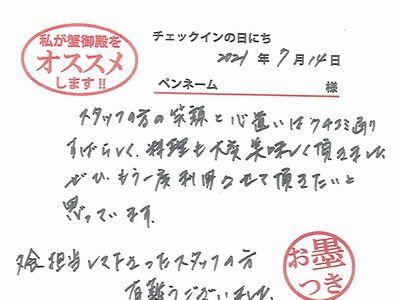 私が蟹御殿を
オススメ
します!!
チェックインの日にち
2021 年 7 月 14 日
ペンネーム 様
スタッフの方の笑顔と心遣いは クチコミ通り
すばらしく、料理も大変美味しく頂きました
ぜひ、もう一度利用させて頂きたいと
思っています。
担当して下さったスタッフの方
有難うございました。
お墨
つき